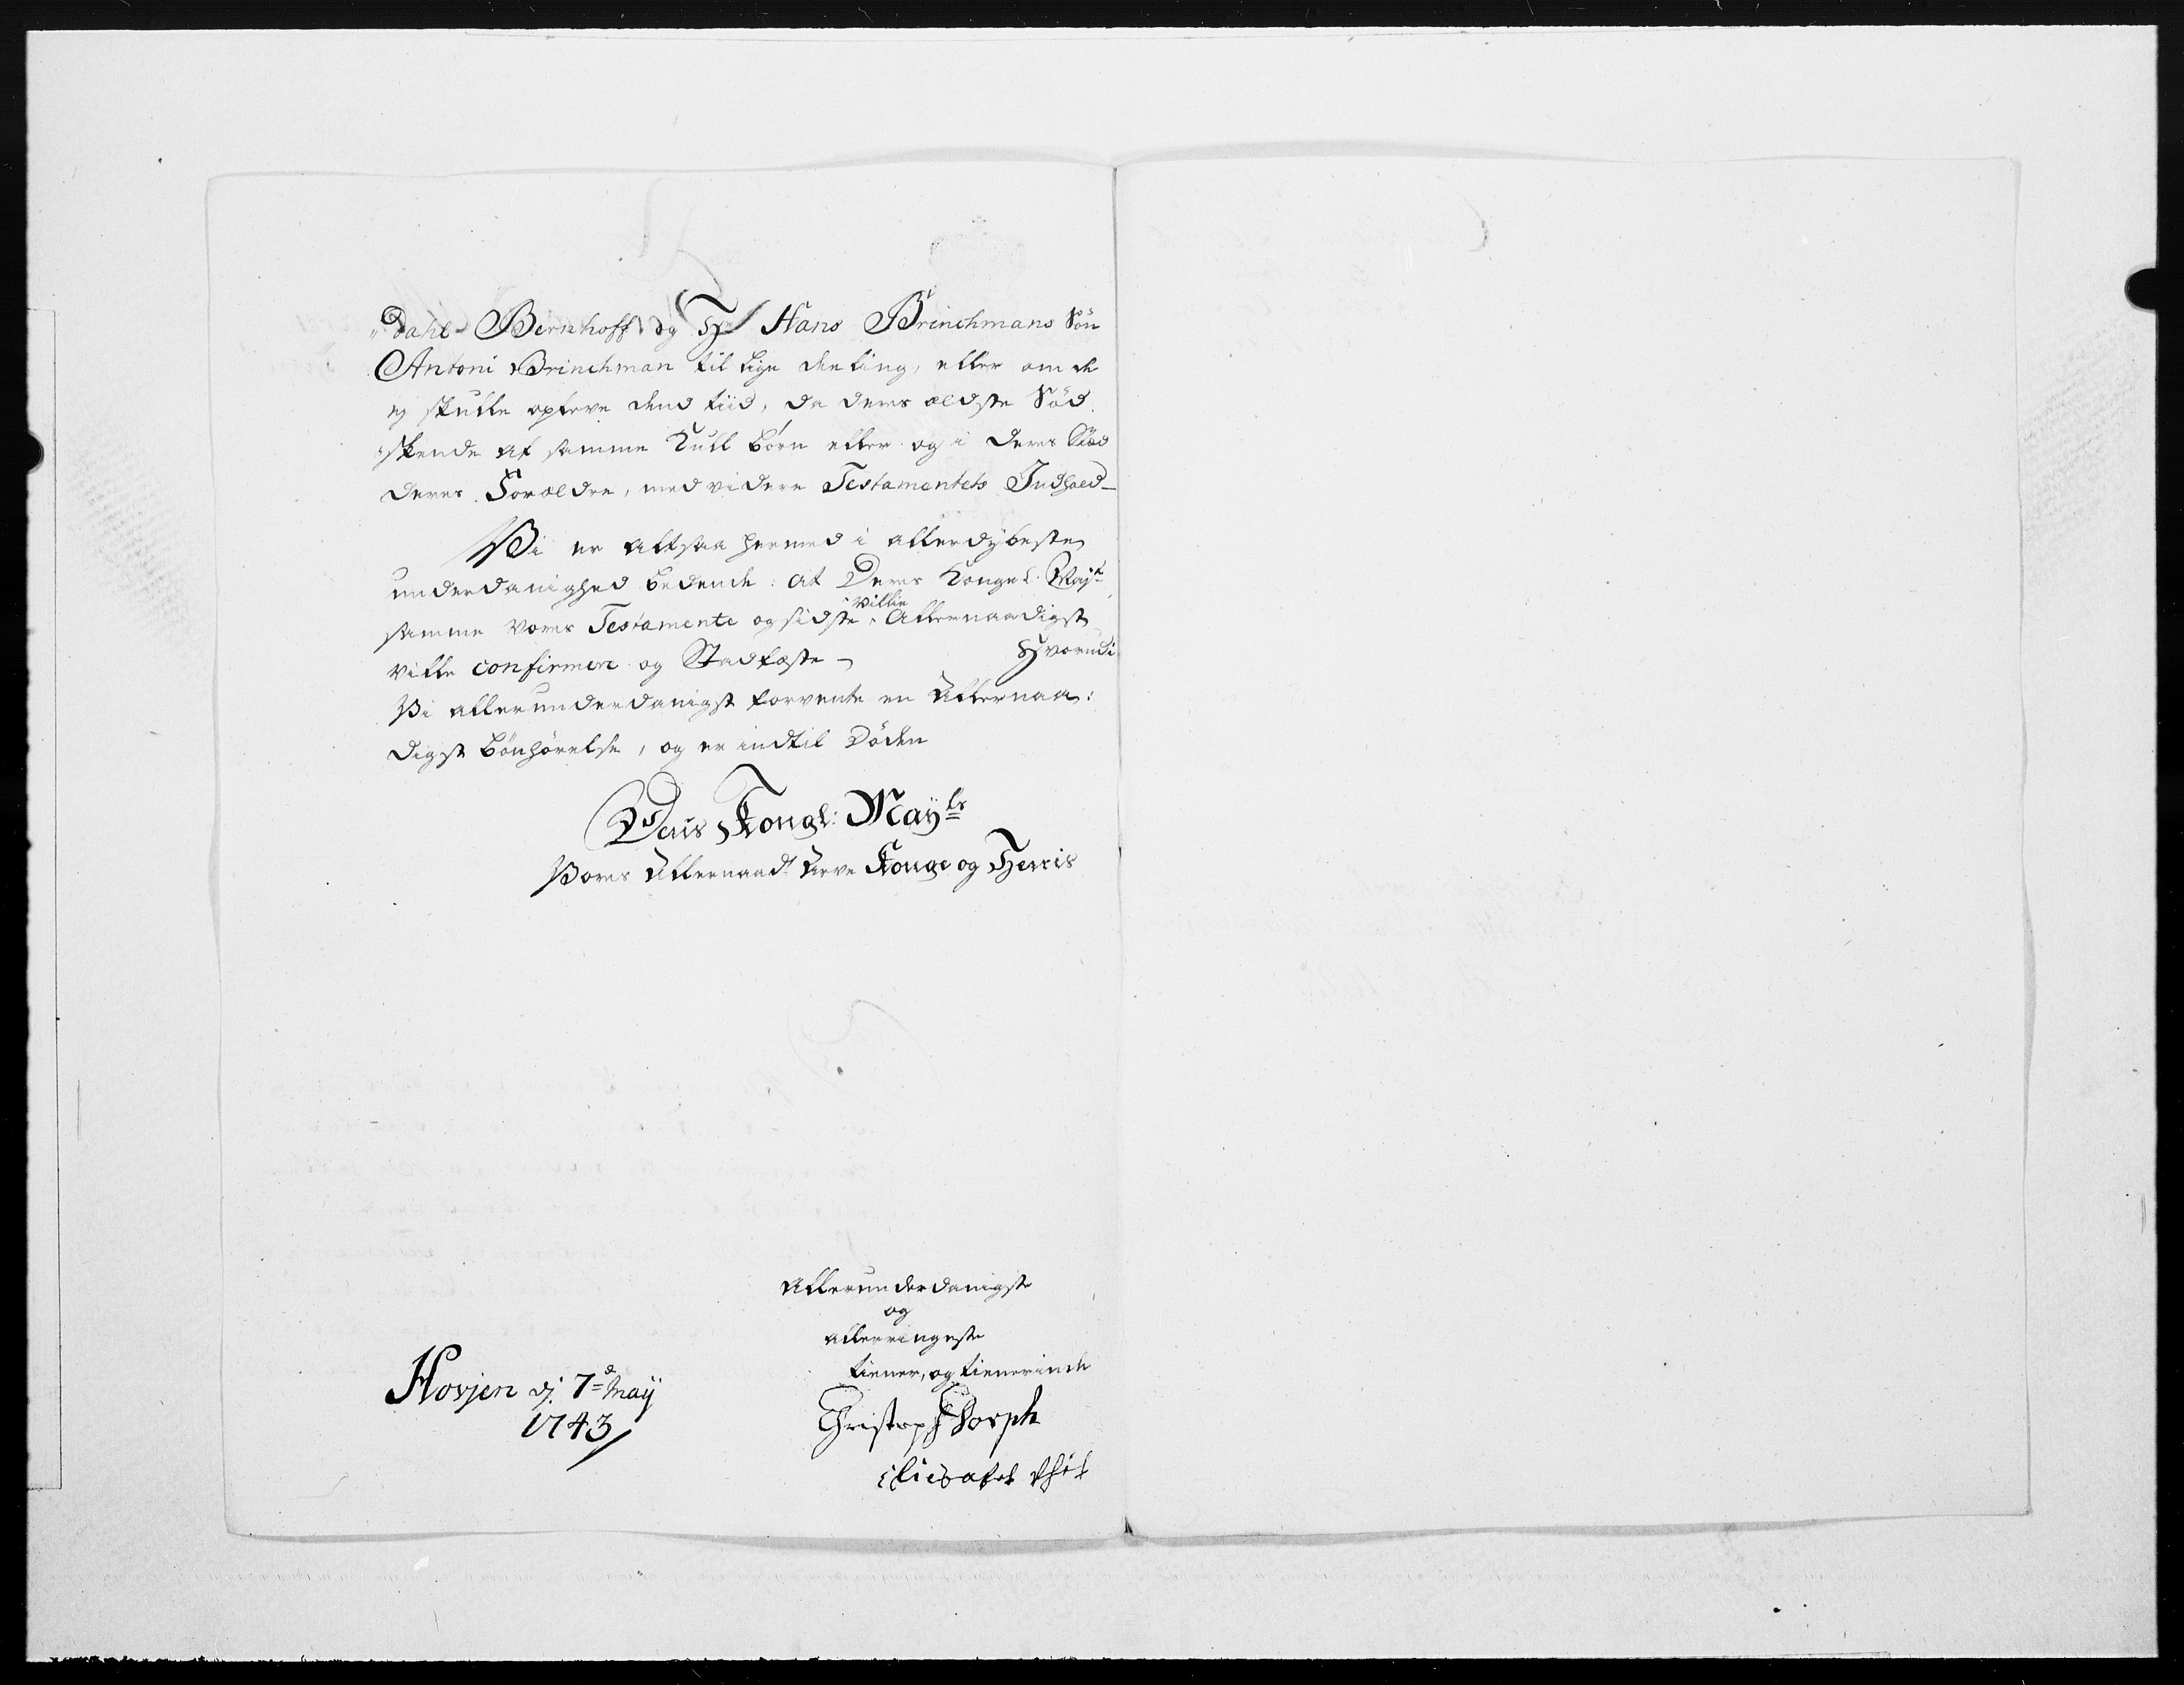 "dahl Bernhoff og Hr Hans Brinchmans Søn
Antoni Brinchman til lige deeling, eller om de
ej skulle opleve dend tiid, da deres ældste Sød
skende af samme Kull børn eller og i deres Stæd
deres Forældre, med videre Testamentets Indhold_
Vi er altsaa hermed i allerdybeste
underdanighed bedende: at Deres Kongel. Mayt
samme vores Testamente og sidste villie Allernaadigst
ville confirmere og Stadfæste_ Hvorudi
Vi allerunderdanigst forvente en Allernaa:
digst bønhørelse, og er indtil Døden
Deris Kongl: Mayts
Vores Allernaadt Arve Konge og Herris
Allerunderdanigste
og
allerringeste
tiener, og tienerinde
Hovjen dj. 7de May
1743
Christoph